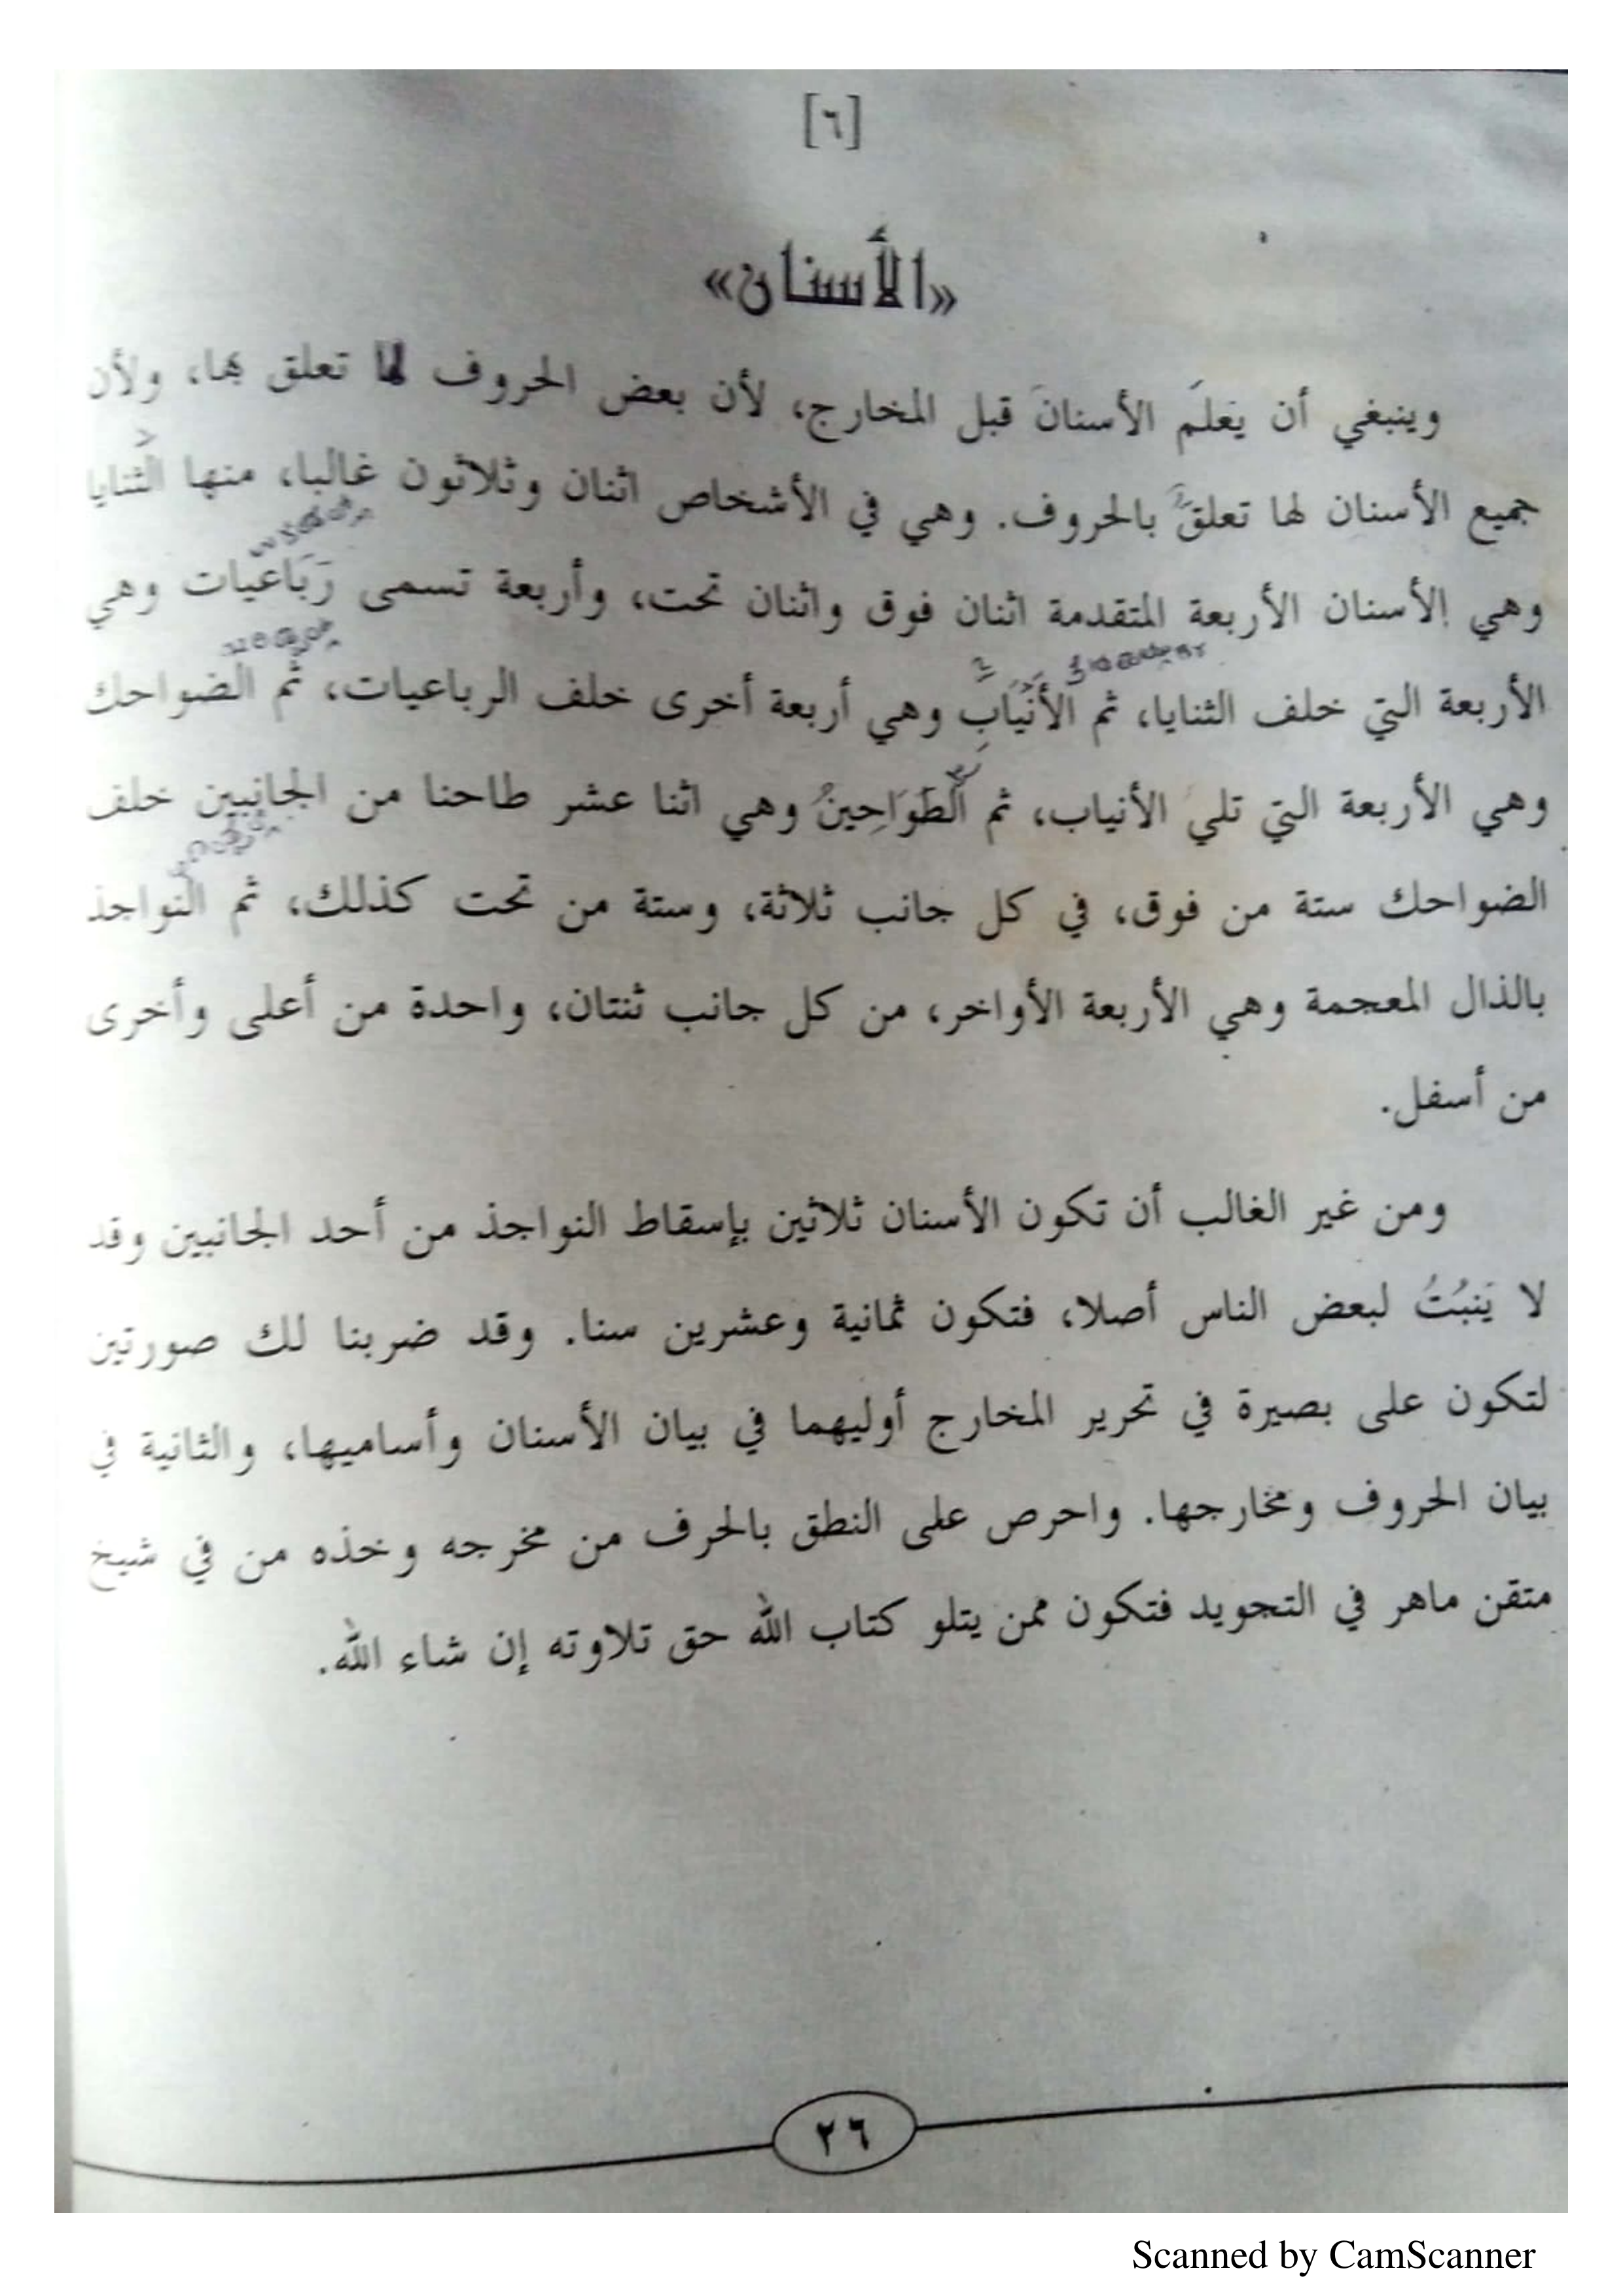 [٦]
«الأسنان»
وينبغي أن يَعلَم الأسنانَ قبل المخارج، لأن بعض الحروف لها تعلق بها، ولأن
جميع الأسنان لها تعلقٌ بالحروف. وهي في الأشخاص اثنان وثلاثون غالبا، منها الثنايا
وهي الأسنان الأربعة المتقدمة اثنان فوق واثنان تحت، وأربعة تسمى رَبَاعيات وهي
الأربعة التي خلف الثنايا، ثم الأَنْيَاب وهي أربعة أخرى خلف الرباعيات، ثم الضواحك
وهي الأربعة التي تلي الأنياب، ثم الطَوَاحِينُ وهي اثنا عشر طاحنا من الجانبين خلف
الضواحك ستة من فوق، في كل جانب ثلاثة، وستة من تحت كذلك، ثم النواجذ
بالذال المعجمة وهي الأربعة الأواخر، من كل جانب ثنتان، واحدة من أعلى وأخرى
من أسفل.
ومن غير الغالب أن تكون الأسنان ثلاثين بإسقاط النواجذ من أحد الجانبين وقد
لا يَنبُتُ لبعض الناس أصلا، فتكون ثمانية وعشرين سنا. وقد ضربنا لك صورتين
لتكون على بصيرة في تحرير المخارج أوليهما في بيان الأسنان وأساميها، والثانية في
بيان الحروف ومخارجها. واحرص على النطق بالحرف من مخرجه وخذه من في شيخ
متقن ماهر في التجويد فتكون ممن يتلو كتاب الله حق تلاوته إن شاء الله.
٢٦
Scanned by CamScanner